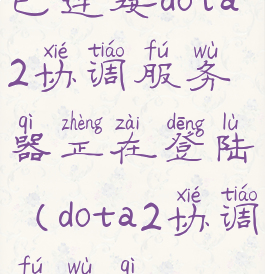 已连接dota
xié tiáo fú wù
2协调服务
qì zhèng zài dēng lù
器正在登陆
xié tiáo
(dota2协调
fú wù qì